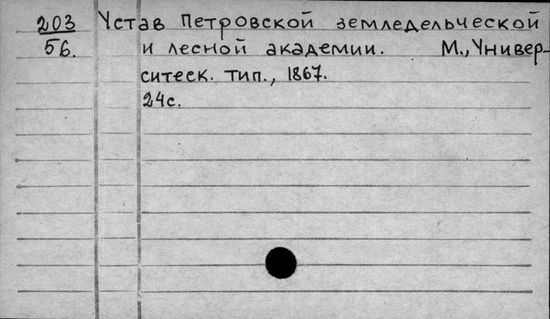 203 Устав Петровской земледельческой
56. и лесной академии. М., Универ-
ситеск. тип., 1867.
24с.